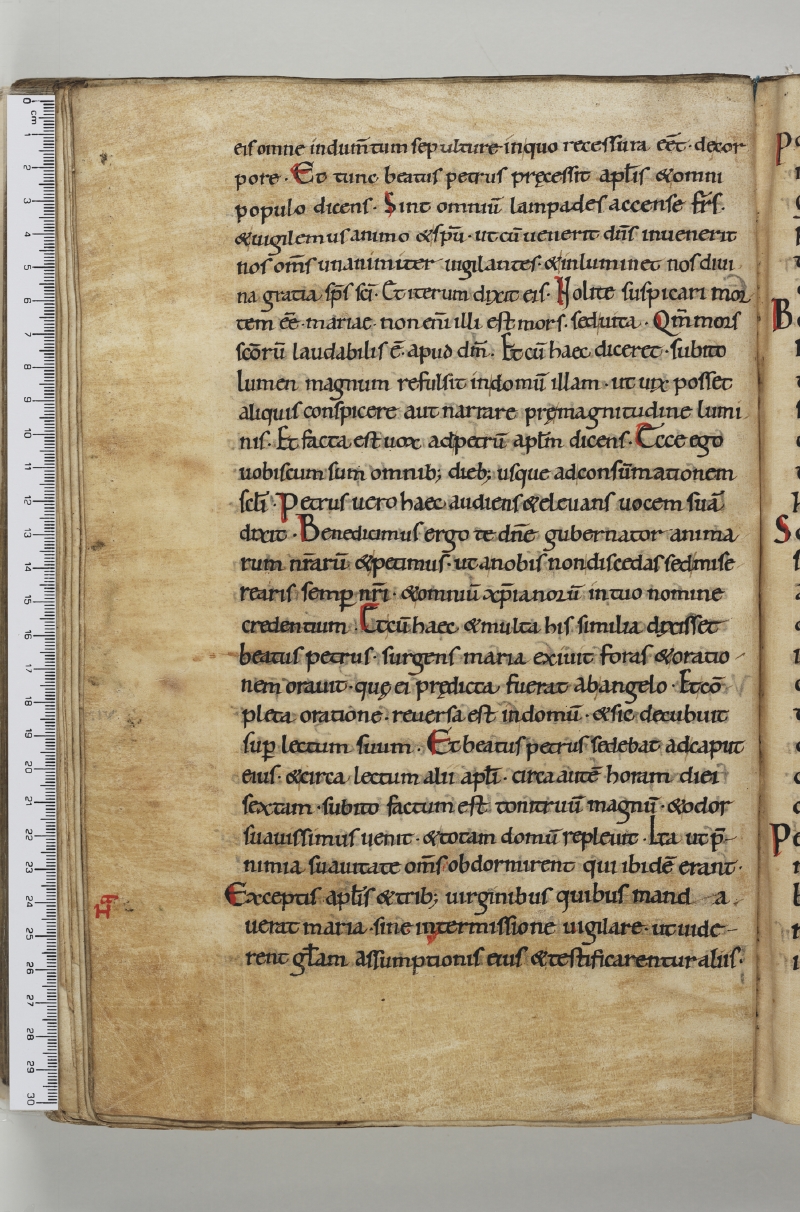 eis omne indum̄tum sepulture inquo recessura eēt· decor
pore· Et tunc beatus petrus pręcessit apl̄is &omni
populo dicens· Sint omniū lampades accense fr̄s·
&uigilemus animo &sp̄u· ut cū uenerit dn̄s inuenerit
nos om̄s unanimiter uigilantes· &inluminet nos diui
na gratia sp̄s sc̄i· Et iterum dixit eis· Nolite suspicari mor
tem eē mariae· non eni̅ illi est mors· sed uita· Qm̄ mors
sc̄orū laudabilis ē· apud dm̄· Et cū haec diceret· subito
lumen magnum refulsit indomū illam· ut uix posset
aliquis conspicere aut narrare pręmagnitudine lumi
nis· Et facta est uox adpetrū apl̄m dicens· Ecce ego
uobiscum sum omnib; dieb; usque adconsūmationem
scl̄i· Petrus uero haec audiens &eleuans uocem suā
dixit· Benedicimus ergo te dn̄e gubernator anima
rum nr̄arū &petimus· ut anobis nondiscedas sed mise
rearis semp̱ nr̄i· &omniū xp̄ianorū intuo nomine
credentium· Et cū haec &multa his similia dixisset
beatus petrus· surgens maria exiuit foras &oratio
nem orauit· quę ei prędicta fuerat abangelo· Et cō
pleta oratione· reuersa est indomū· &sic decubuit
sup̱ lectum suum· Et beatus petrus sedebat adcaput
eius· &circa lectum alii apl̄i· circa autē horam diei
sextam· subito factum est tonitruū magnū· &odor
suauissimus uenit· &totam domū repleuit· Ita ut p̄
nimia suauitate om̄s obdormirent qui ibidē erant·
Exceptis apl̄is &trib; uirginibus quibus mand a
uerat maria· sine intermissione uigilare· ut uide
rent gl̄am assumptionis eius &testificarentur aliis·